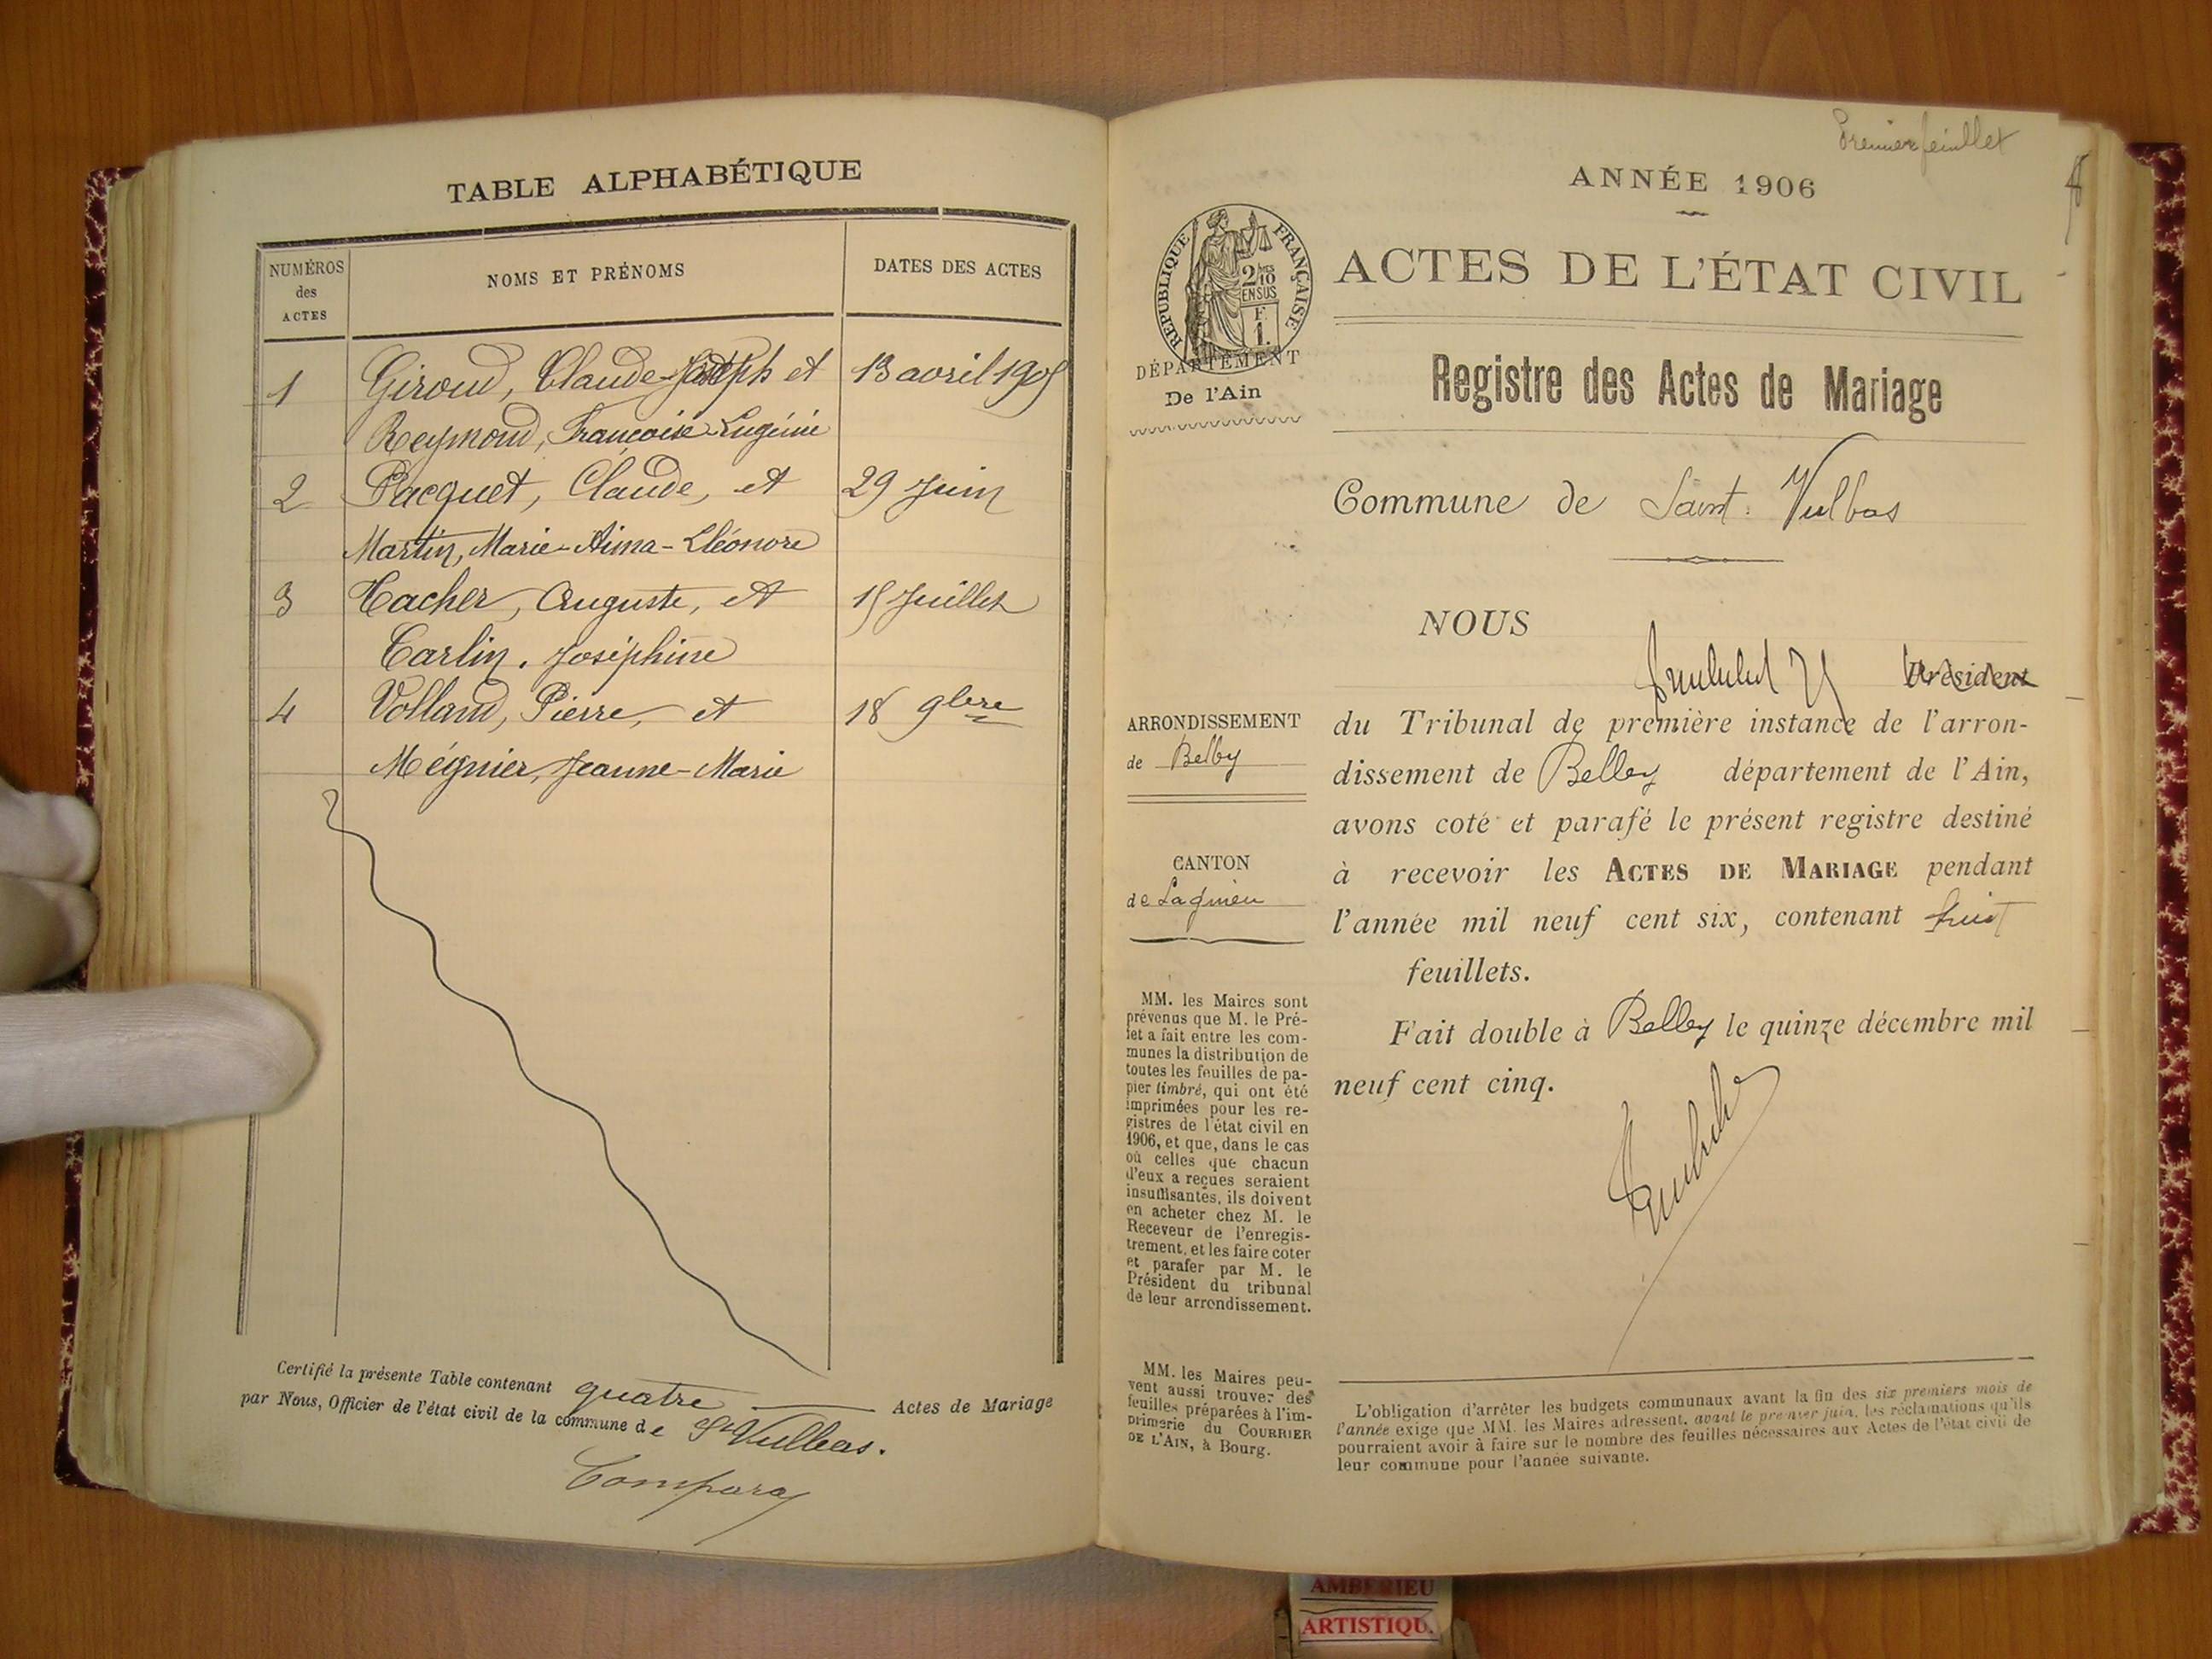 TABLE ALPHABÉTIQUE
NUMÉROS
des
ACTES
NOMS ET PRÉNOMS
DATES DES ACTES
1 Giroud, Claude-Joseph et 13 avril 1905
Reymond, Françoise-Eugénie
2 Pacquet, Claude, et 29 Juin
Martin, Marie-Aima-Eléonore
3 Cacher, Auguste, et 15 Juillet
Carlin, Joséphine
4 Volland, Pierre, et 18 9bre
Mégnier, Jeanne-Marie
Certifié la présente Table contenant quatre Actes de Mariage
par Nous, Officier de l'état civil de la commune de St Vulbas.
Premier feuillet
ANNÉE 1906
ACTES DE L'ÉTAT CIVIL
RÉPUBLIQUE FRANÇAISE
2/10
EN SUS
F.
1.
DÉPARTEMENT
De l'Ain
Registre des Actes de Mariage
Commune de Saint Vulbas
NOUS
Président
du Tribunal de première instance de l'arron-
dissement de Belley département de l'Ain,
avons coté et parafé le présent registre destiné
à recevoir les ACTES DE MARIAGE pendant
l'année mil neuf cent six, contenant huit
feuillets.
Fait double à Belley le quinze décembre mil
neuf cent cinq.
ARRONDISSEMENT
de Belley
CANTON
de Lagnieu
MM. les Maires sont
prévenus que M. le Pré-
fet a fait entre les com-
munes la distribution de
toutes les feuilles de pa-
pier timbré, qui ont été
imprimées pour les re-
gistres de l'état civil en
1906, et que, dans le cas
où celles que chacun
d'eux a reçues seraient
insuffisantes, ils doivent
en acheter chez M. le
Receveur de l'enregis-
trement, et les faire coter
et parafer par M. le
Président du tribunal
de leur arrondissement.
MM. les Maires peu-
vent aussi trouver des
feuilles préparées à l'im-
primerie du COURRIER
DE L'AIN, à Bourg.
L'obligation d'arrêter les budgets communaux avant la fin des six premiers mois de
l'année exige que MM. les Maires adressent, avant le premier juin, les réclamations qu'ils
pourraient avoir à faire sur le nombre des feuilles nécessaires aux Actes de l'état civil de
leur commune pour l'année suivante.
AMBERIEU
ARTISTIQU